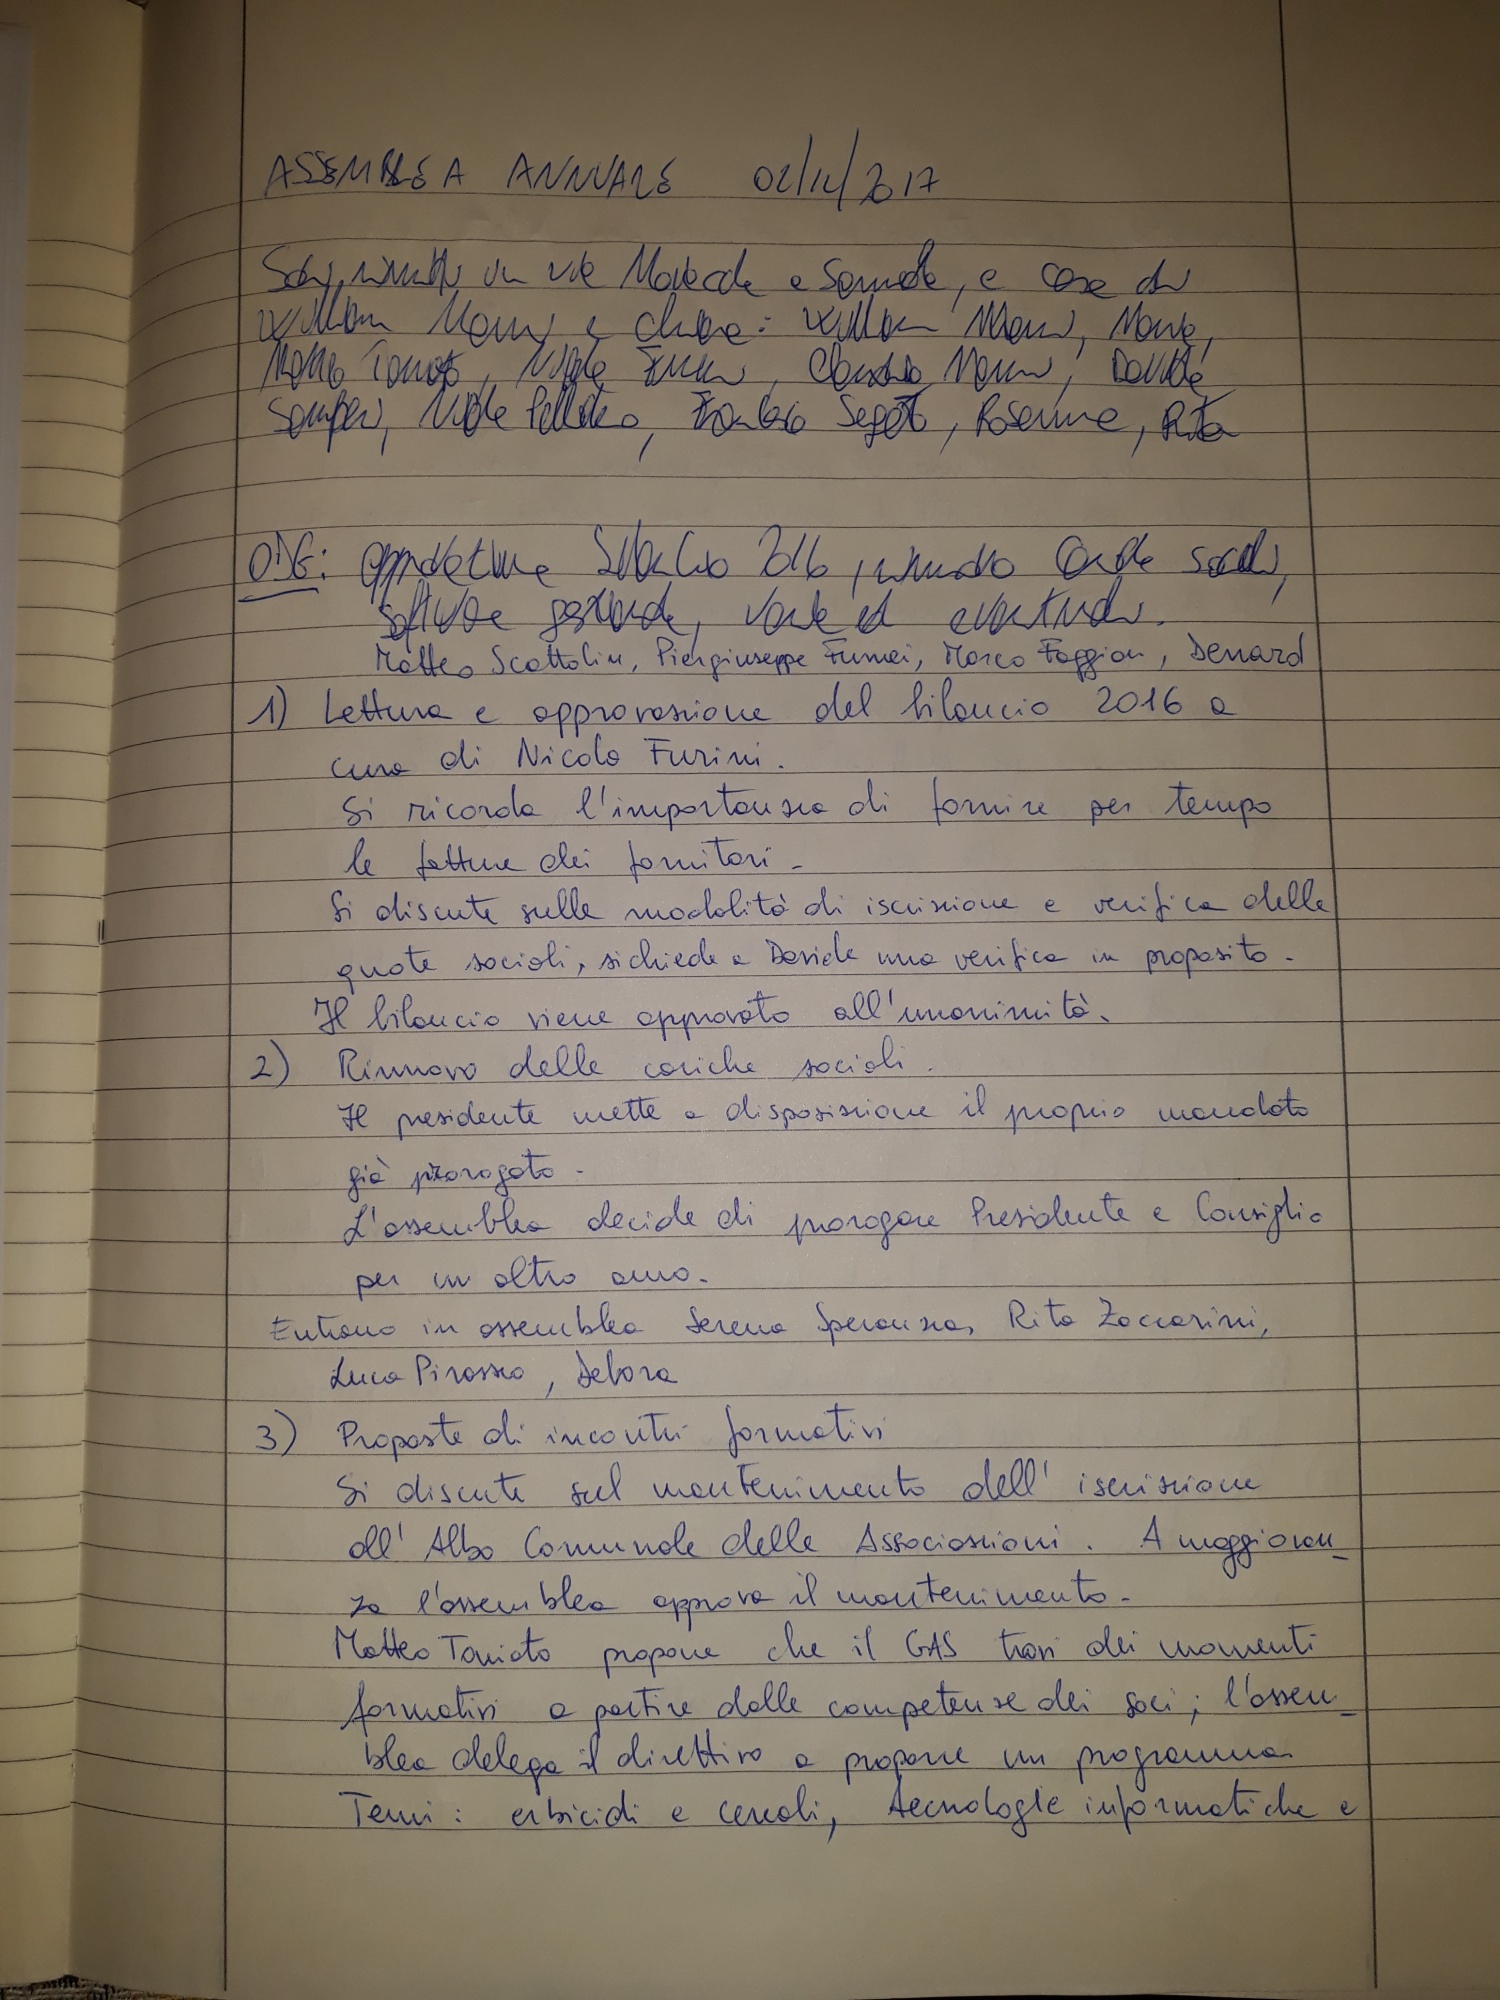 ASSEMBLEA ANNUALE 02/12/2017
in via e Samuele, a casa di
William e Chiara: William
Matteo Toniato, Nicola Furini, Claudio Davide
Nicola Rosanna, Rita
ODG: approvazione bilancio 2016, rinnovo cariche sociali,
software gestionale, varie ed eventuali.
Matteo Scattolin, Piergiuseppe Fumei, Marco Faggion, Denard
1) Lettura e approvazione del bilancio 2016 a
cura di Nicola Furini.
Si ricorda l'importanza di fornire per tempo
le fatture dei fornitori.
Si discute sulle modalità di iscrizione e verifica delle
quote sociali, si chiede a Davide una verifica in proposito.
Il bilancio viene approvato all'unanimità.
2) Rinnovo delle cariche sociali.
Il presidente mette a disposizione il proprio mandato
già prorogato.
L'assemblea decide di prorogare Presidente e Consiglio
per un altro anno.
Entrano in assemblea Serena Speranza, Rita Zaccarini,
Luca Pirazzo, Debora
3) Proposte di incontri formativi
Si discute sul mantenimento dell'iscrizione
all'Albo Comunale delle Associazioni. A maggioran_
za l'assemblea approva il mantenimento.
Matteo Toniato propone che il GAS trovi dei momenti
formativi a partire dalle competenze dei soci; l'assem_
blea delega il direttivo a proporre un programma.
Temi: erbicidi e cereali, tecnologie informatiche e